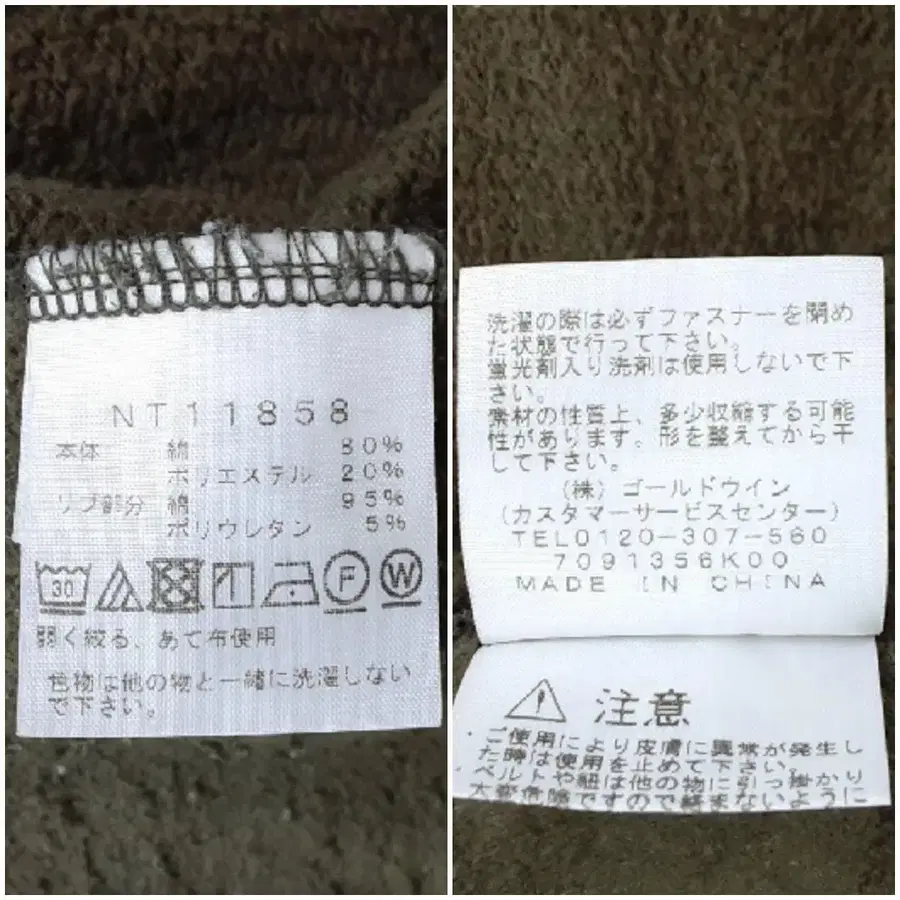 NT11858
本体 綿 80%
ポリエステル 20%
リブ部分 綿 95%
ポリウレタン 5%
30
F
W
弱く絞る、あて布使用
色物は他の物と一緒に洗濯しない
で下さい。
洗濯の際は必ずファスナーを閉め
た状態で行って下さい。
蛍光剤入り洗剤は使用しないで下
さい。
素材の性質上、多少収縮する可能
性があります。形を整えてから干
して下さい。
(株)ゴールドウイン
(カスタマーサービスセンター)
TEL0120-307-560
7091356K00
MADE IN CHINA
注意
ご使用により皮膚に異常が発生し
た時は使用を止めて下さい。
ベルトや紐は他の物に引っ掛かり
大変危険ですので絡まないように